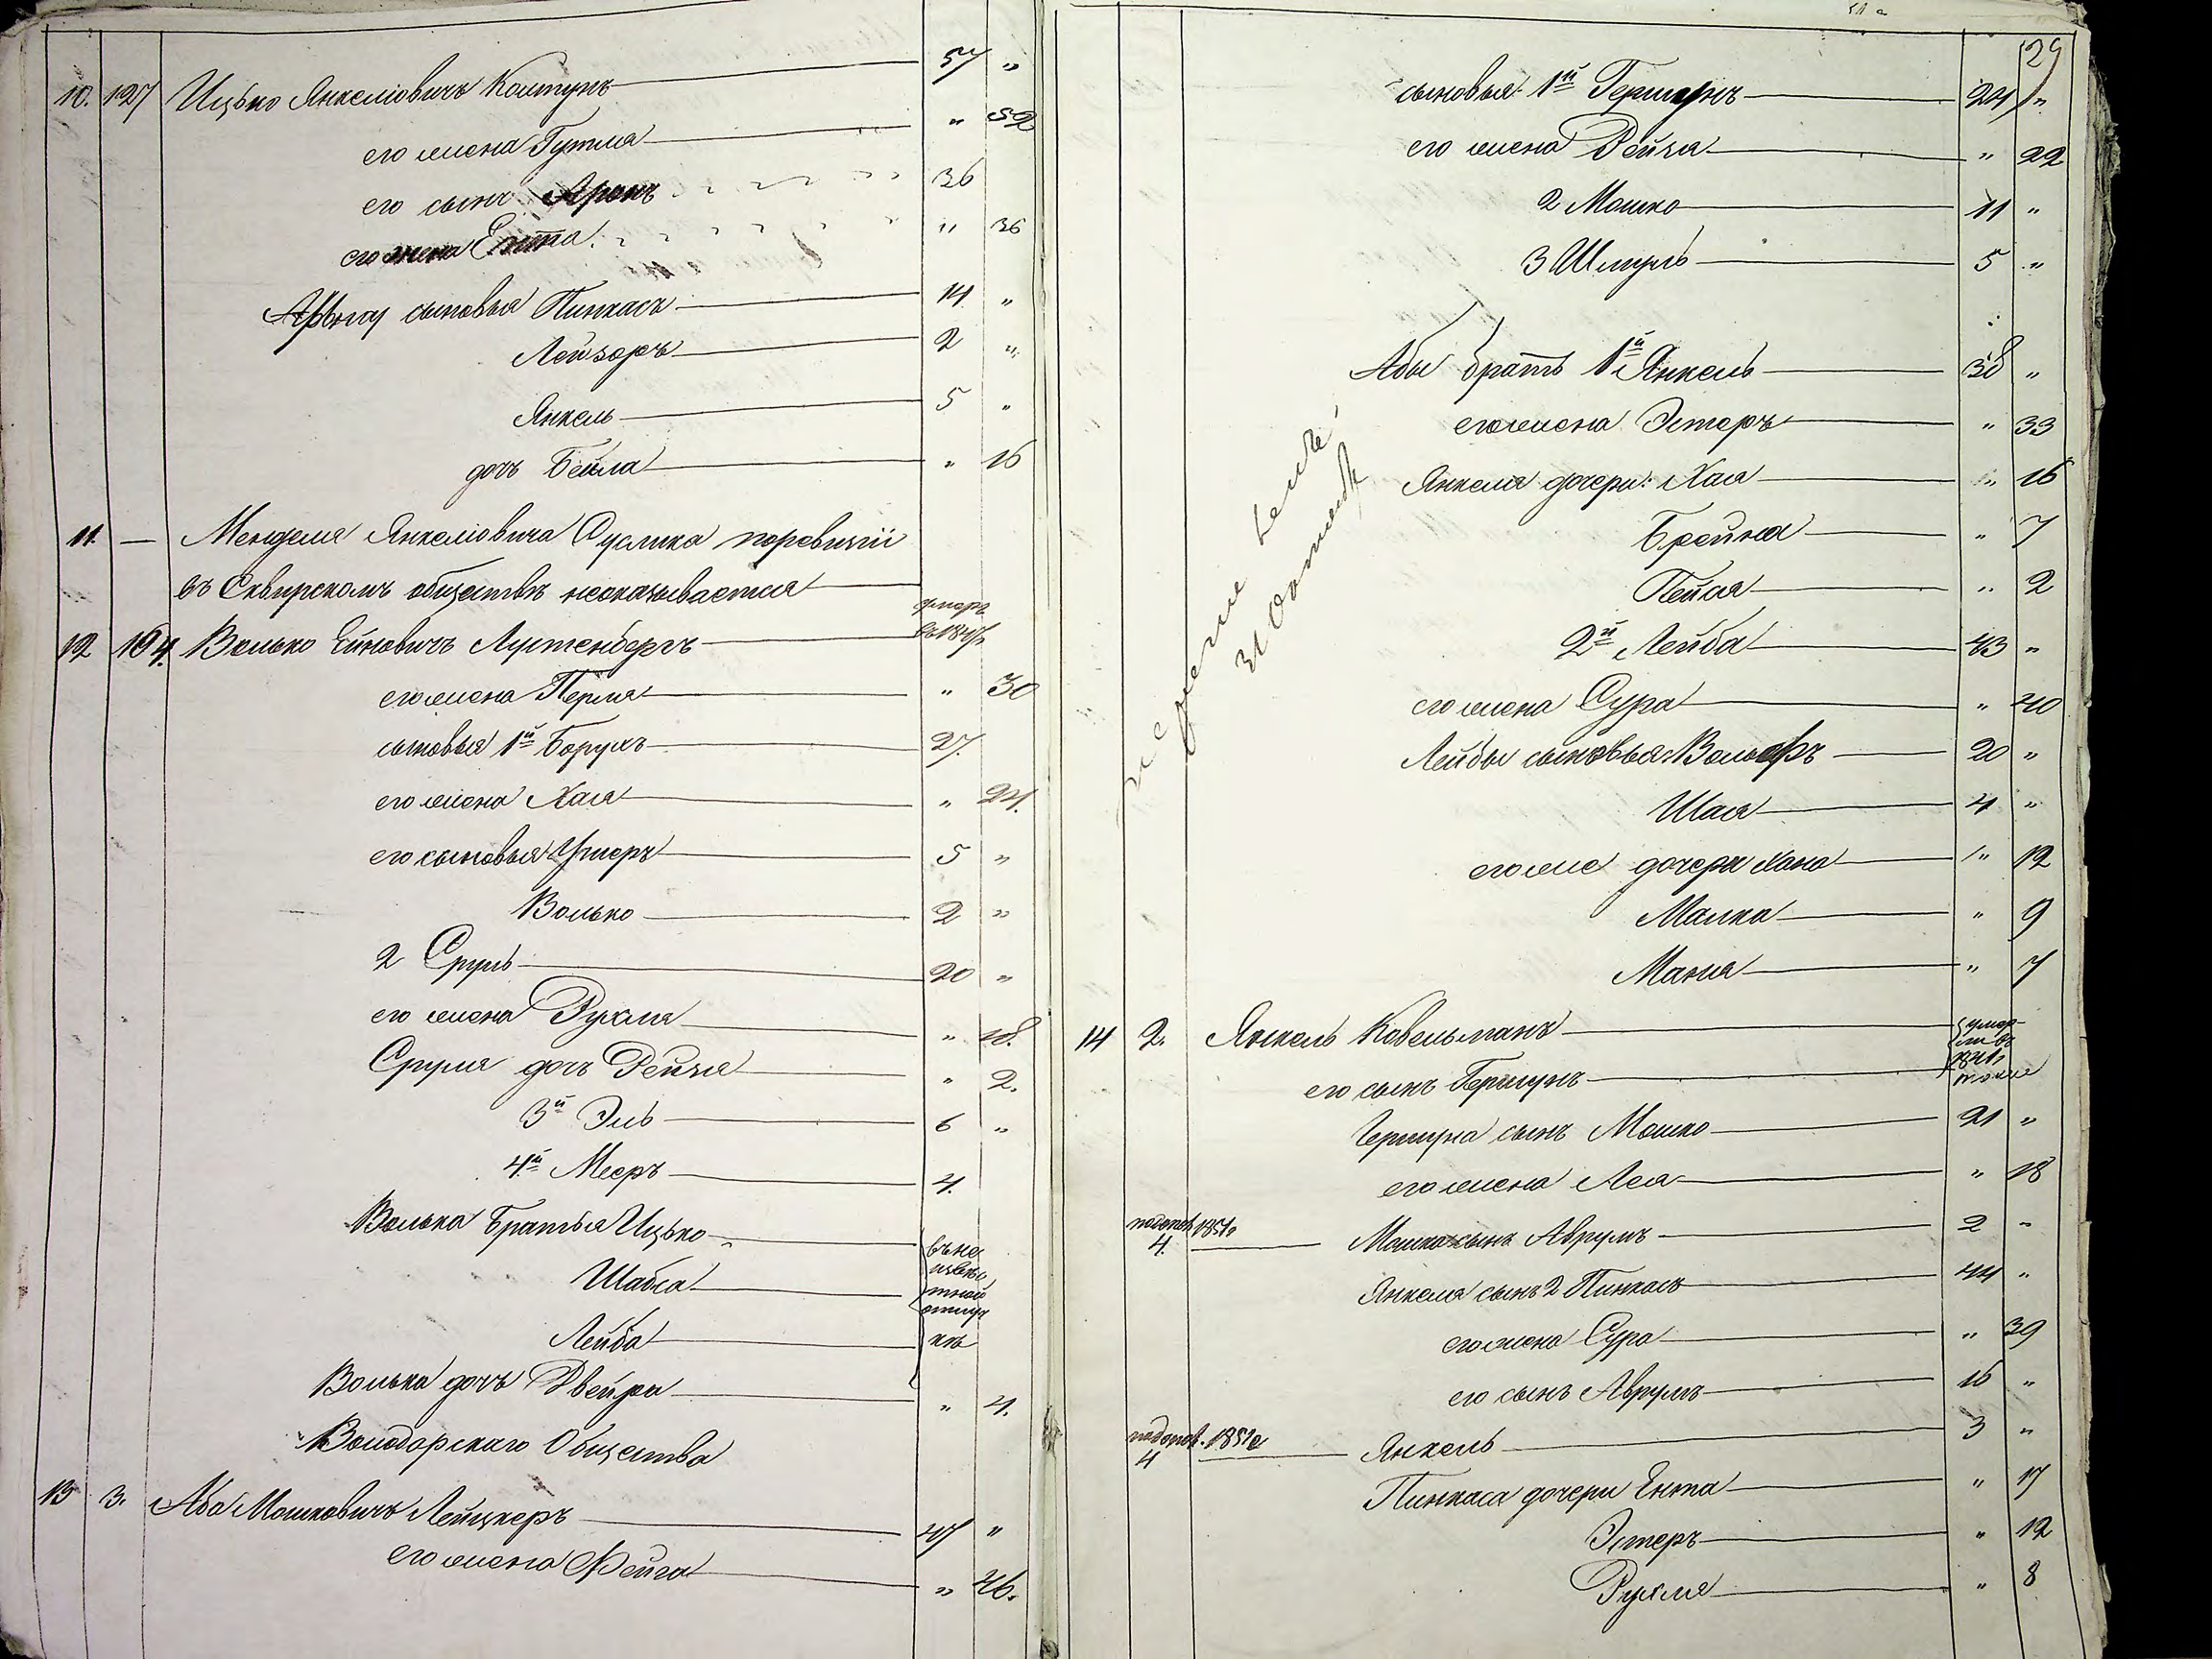 10. 127 Ицько Янкеліовичъ Колтунъ 57 "
его жена Гутля " 52
его сынъ Аронъ 36
его жена Ента " 36
Арону сыновья Пинкасъ 14 "
Лейзоръ 2 "
Янкель 5 "
дочь Бейла " 16
11. — Менделя Янкеліовича Суслика по ревизіи
въ Сквирскомъ обществѣ не оказывается
12 194. Волько Лустенбергъ умеръ въ 184
его жена Перля " 30
сыновья 1й Борухъ 27.
его жена Хая " 24.
его сыновья Ушеръ 5 "
Волько 2 "
2 Сруль 20 "
его жена Рухля " 18.
Сруля дочь Рейзя " 2.
3й Эль 6 "
4й Мееръ 4.
Волька братья Ицько въ не
Шабса извѣс
тной
отлуч
Лейба кѣ
Волька дочь Двейра " 4.
Володарскаго Общества
13 3. Аба Мошковичъ Лейцкеръ 47 "
его жена Фейга " 46.
29
сыновья 1й Гершунъ 24 "
его жена Рейзя " 22
2 Мошко 11 "
3 Шмуль 5 "
Абы братъ 1й Янкель 38 "
его жена Эстеръ " 33
Янкеля дочери: Хая " 16
Брейна " 7
Пейся " 2
2й Лейба 43 "
его жена Сура " 40
Лейбы сыновья Вольфъ 20 "
Шая 4 "
его же дочери Хана " 12
Малка " 9
Маня " 7
14 2. Янкель Ковельманъ умер-
ли въ
его сынъ Гершунъ
Гершуна сынъ Мошко 21 "
его жена Лея " 18
1851 4. Мошка сынъ Аврумъ 2 "
Янкеля сынъ 2 Пинкасъ 44 "
его жена Сура " 39
его сынъ Аврумъ 16 "
1851 4 Янкель 3 "
Пинкаса дочери Ента " 17
Эстеръ " 12
Рухля " 8